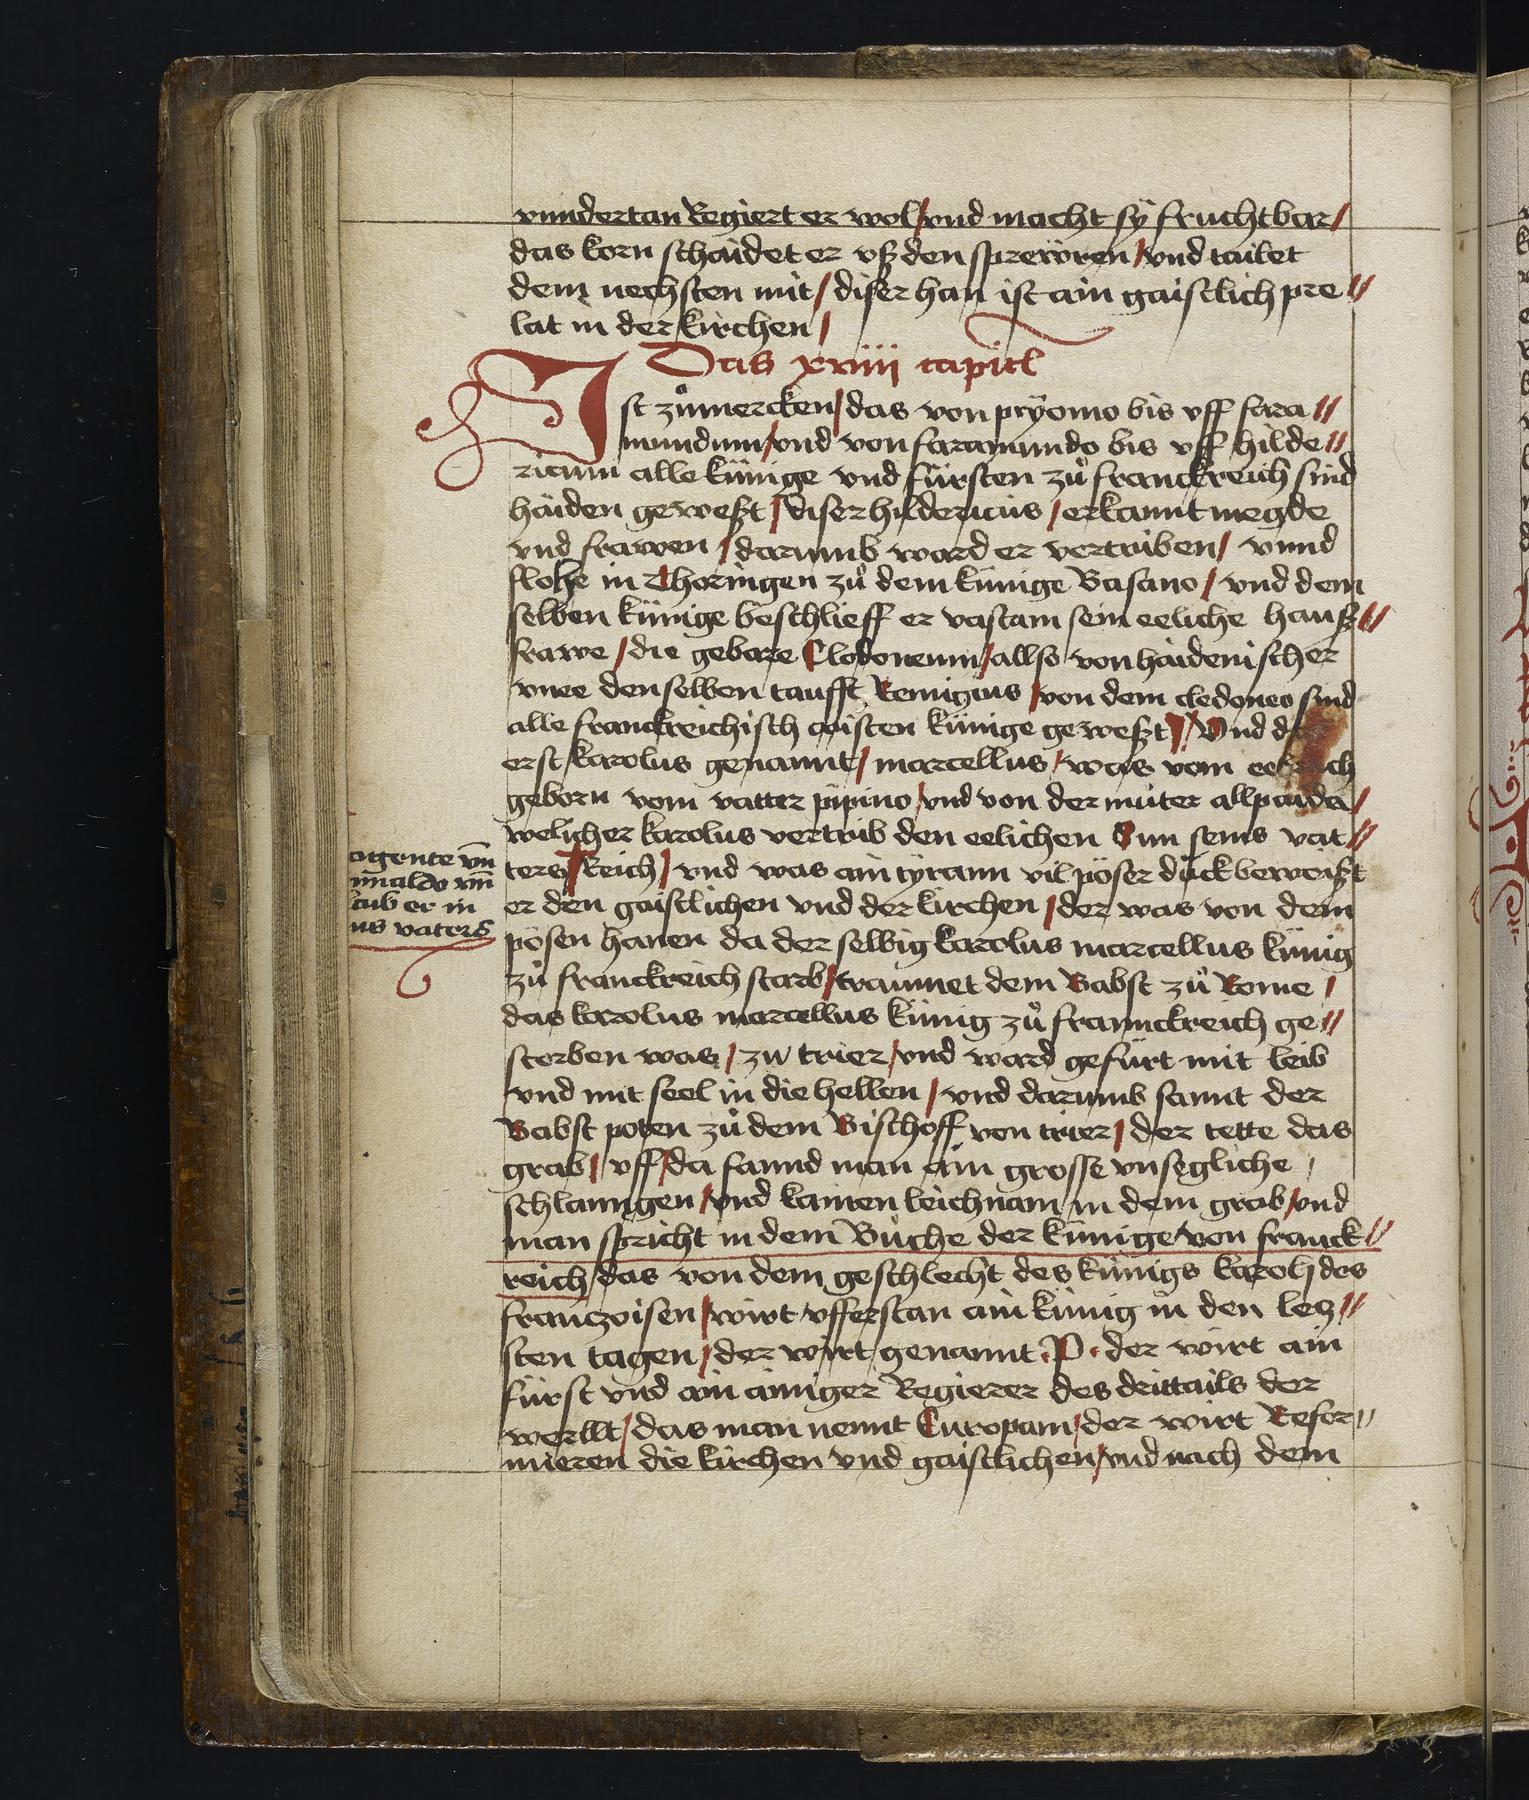 vnndertan Regiert er wol / vnd macht sÿ fruchtbar /
das korn schaidet er vß den sprewren / vnd tailet
dem nechsten mit / diser han ist ain gaistlich pre //
lat in der kirchen /
Das xviiii capitl
Ist zůmercken / das von prÿomo bis vff fara //
mundum / vnd von faramundo bis vff hilde //
ricum alle künige vnd fürsten zů franckreich sind
haiden geweßt / diser hildericus / erkannt megde
vnd frawen / darumb ward er vertriben / vnnd
flohe in Thoringen zů dem künige Basano / vnd dem
selben künige beschlieff er vastam sein eeliche hauß //
frawe / die gebare Clodoneum / allso von haidenischer
vnee den selben taufft Remigius / von dem cledoneo sind
alle franckreichisch cristen künige geweßt / Vnd
erst karolus genannt / marcellus / was vom
geborn vom vatter pipino / vnd von der můter allpaida /
welicher karolus vertrib den eelichen Sun seins vat //
ters / Reich / vnd was ain tÿrann vil pöser duck beweißt
er den gaistlichen vnd der kirchen / der was von dem
pösen hanen da der selbig karolus marcellus künig
zů franckreich starb / traumet dem Babst zů Rome /
das karolus marcellus künig zů frannckreich ge //
storben was / zu trier / vnd ward gefürt mit leib
vnd mit seel in die hellen / vnd darumb sannt der
Babst poten zů dem Bischoff von trier / der tette das
grab / vff / da fannd man ain grosse vnsegliche /
schlanngen / vnd kainen leichnam in dem grab / vnd
man spricht in dem Bůche der künige von franck //
reich / das von dem geschlecht des künigs karolj des
franczoisen / wirt vfferstan ain künig in den lecz //
sten tagen / der wirt genannt · P · der wirt ain
fürst vnd ain ainiger Regierer des drittails der
werllt / das man nennt Europam / der wirt Refor //
mieren die kirchen vnd gaistlichen / vnd nach dem
agente vn̄
er in
vaters